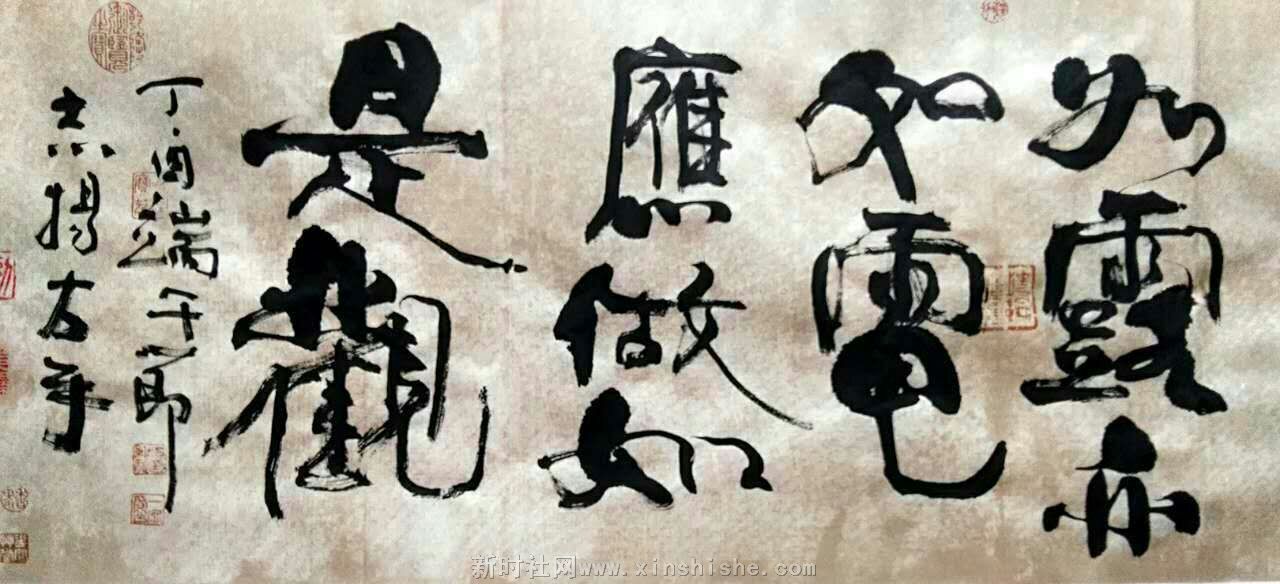 如露亦
如電
應做如
是觀
丁酉端午節
志揚古年
新时社网www.xinshishe.com